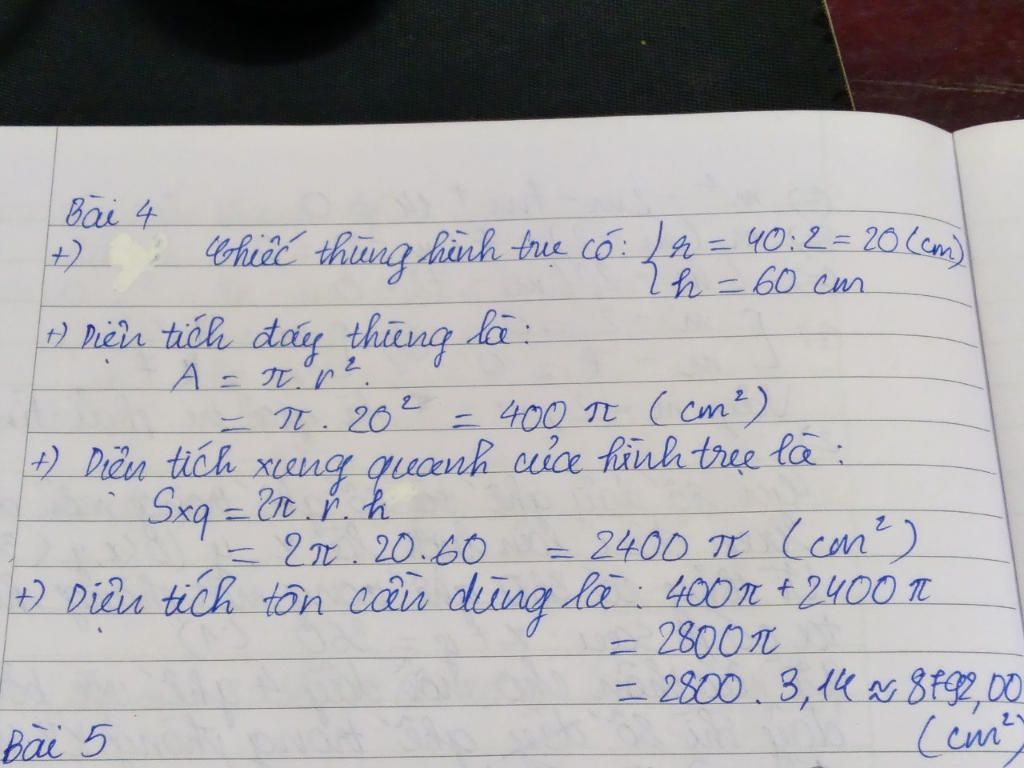 Bài 4
+) Chiếc thùng hình trụ có: { r = 40:2 = 20 (cm)
h = 60 cm
+) Diện tích đáy thùng là:
A = π.r².
= π.20² = 400 π (cm²)
+) Diện tích xung quanh của hình trụ là:
Sxq = 2π.r.h
= 2π.20.60 = 2400 π (cm²)
+) Diện tích tôn cần dùng là: 400π + 2400 π
= 2800π
= 2800.3,14 ≈ 8792,00
(cm²)
Bài 5